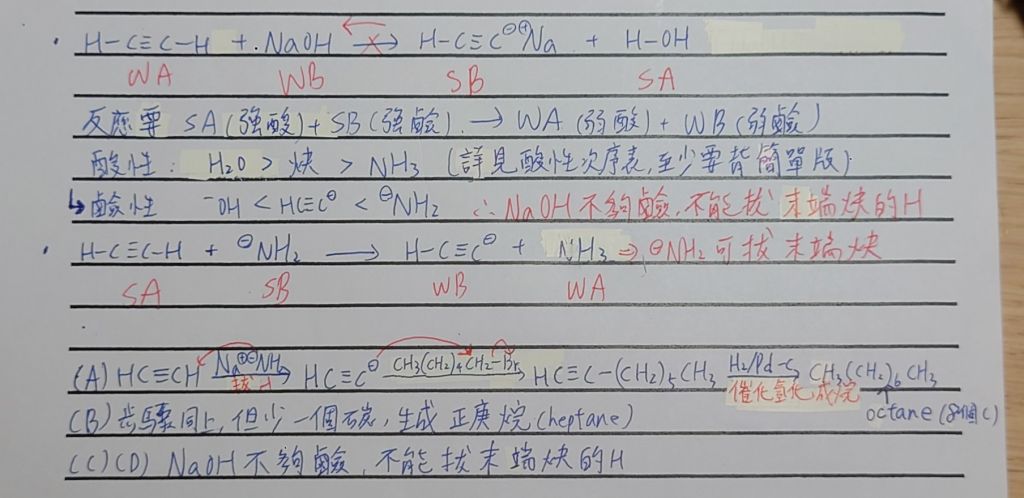 · H-C≡C-H + NaOH ⇄ H-C≡C⊖⊕Na + H-OH
WA WB SB SA
反應要 SA(強酸) + SB(強鹼) → WA (弱酸) + WB (弱鹼)
酸性: H2O > 炔 > NH3 (詳見酸性次序表,至少要背簡單版)
↳鹼性 ⁻OH < HC≡C⊖ < ⊖NH2 ∴ NaOH 不夠鹼,不能拔 末端炔的H
· H-C≡C-H + ⊖NH2 → H-C≡C⊖ + NH3 ⇒ ⊖NH2 可拔 末端炔
SA SB WB WA
(A) HC≡CH Na⊕⊖NH2 拔H → HC≡C⊖ CH3(CH2)4CH2-Br → HC≡C-(CH2)5CH3 H2/Pd-C 催化氫化成烷 → CH3(CH2)6CH3
octane (8個C)
(B) 步驟同上,但少一個碳,生成 正庚烷 (heptane)
(C)(D) NaOH 不夠鹼,不能拔末端炔的H